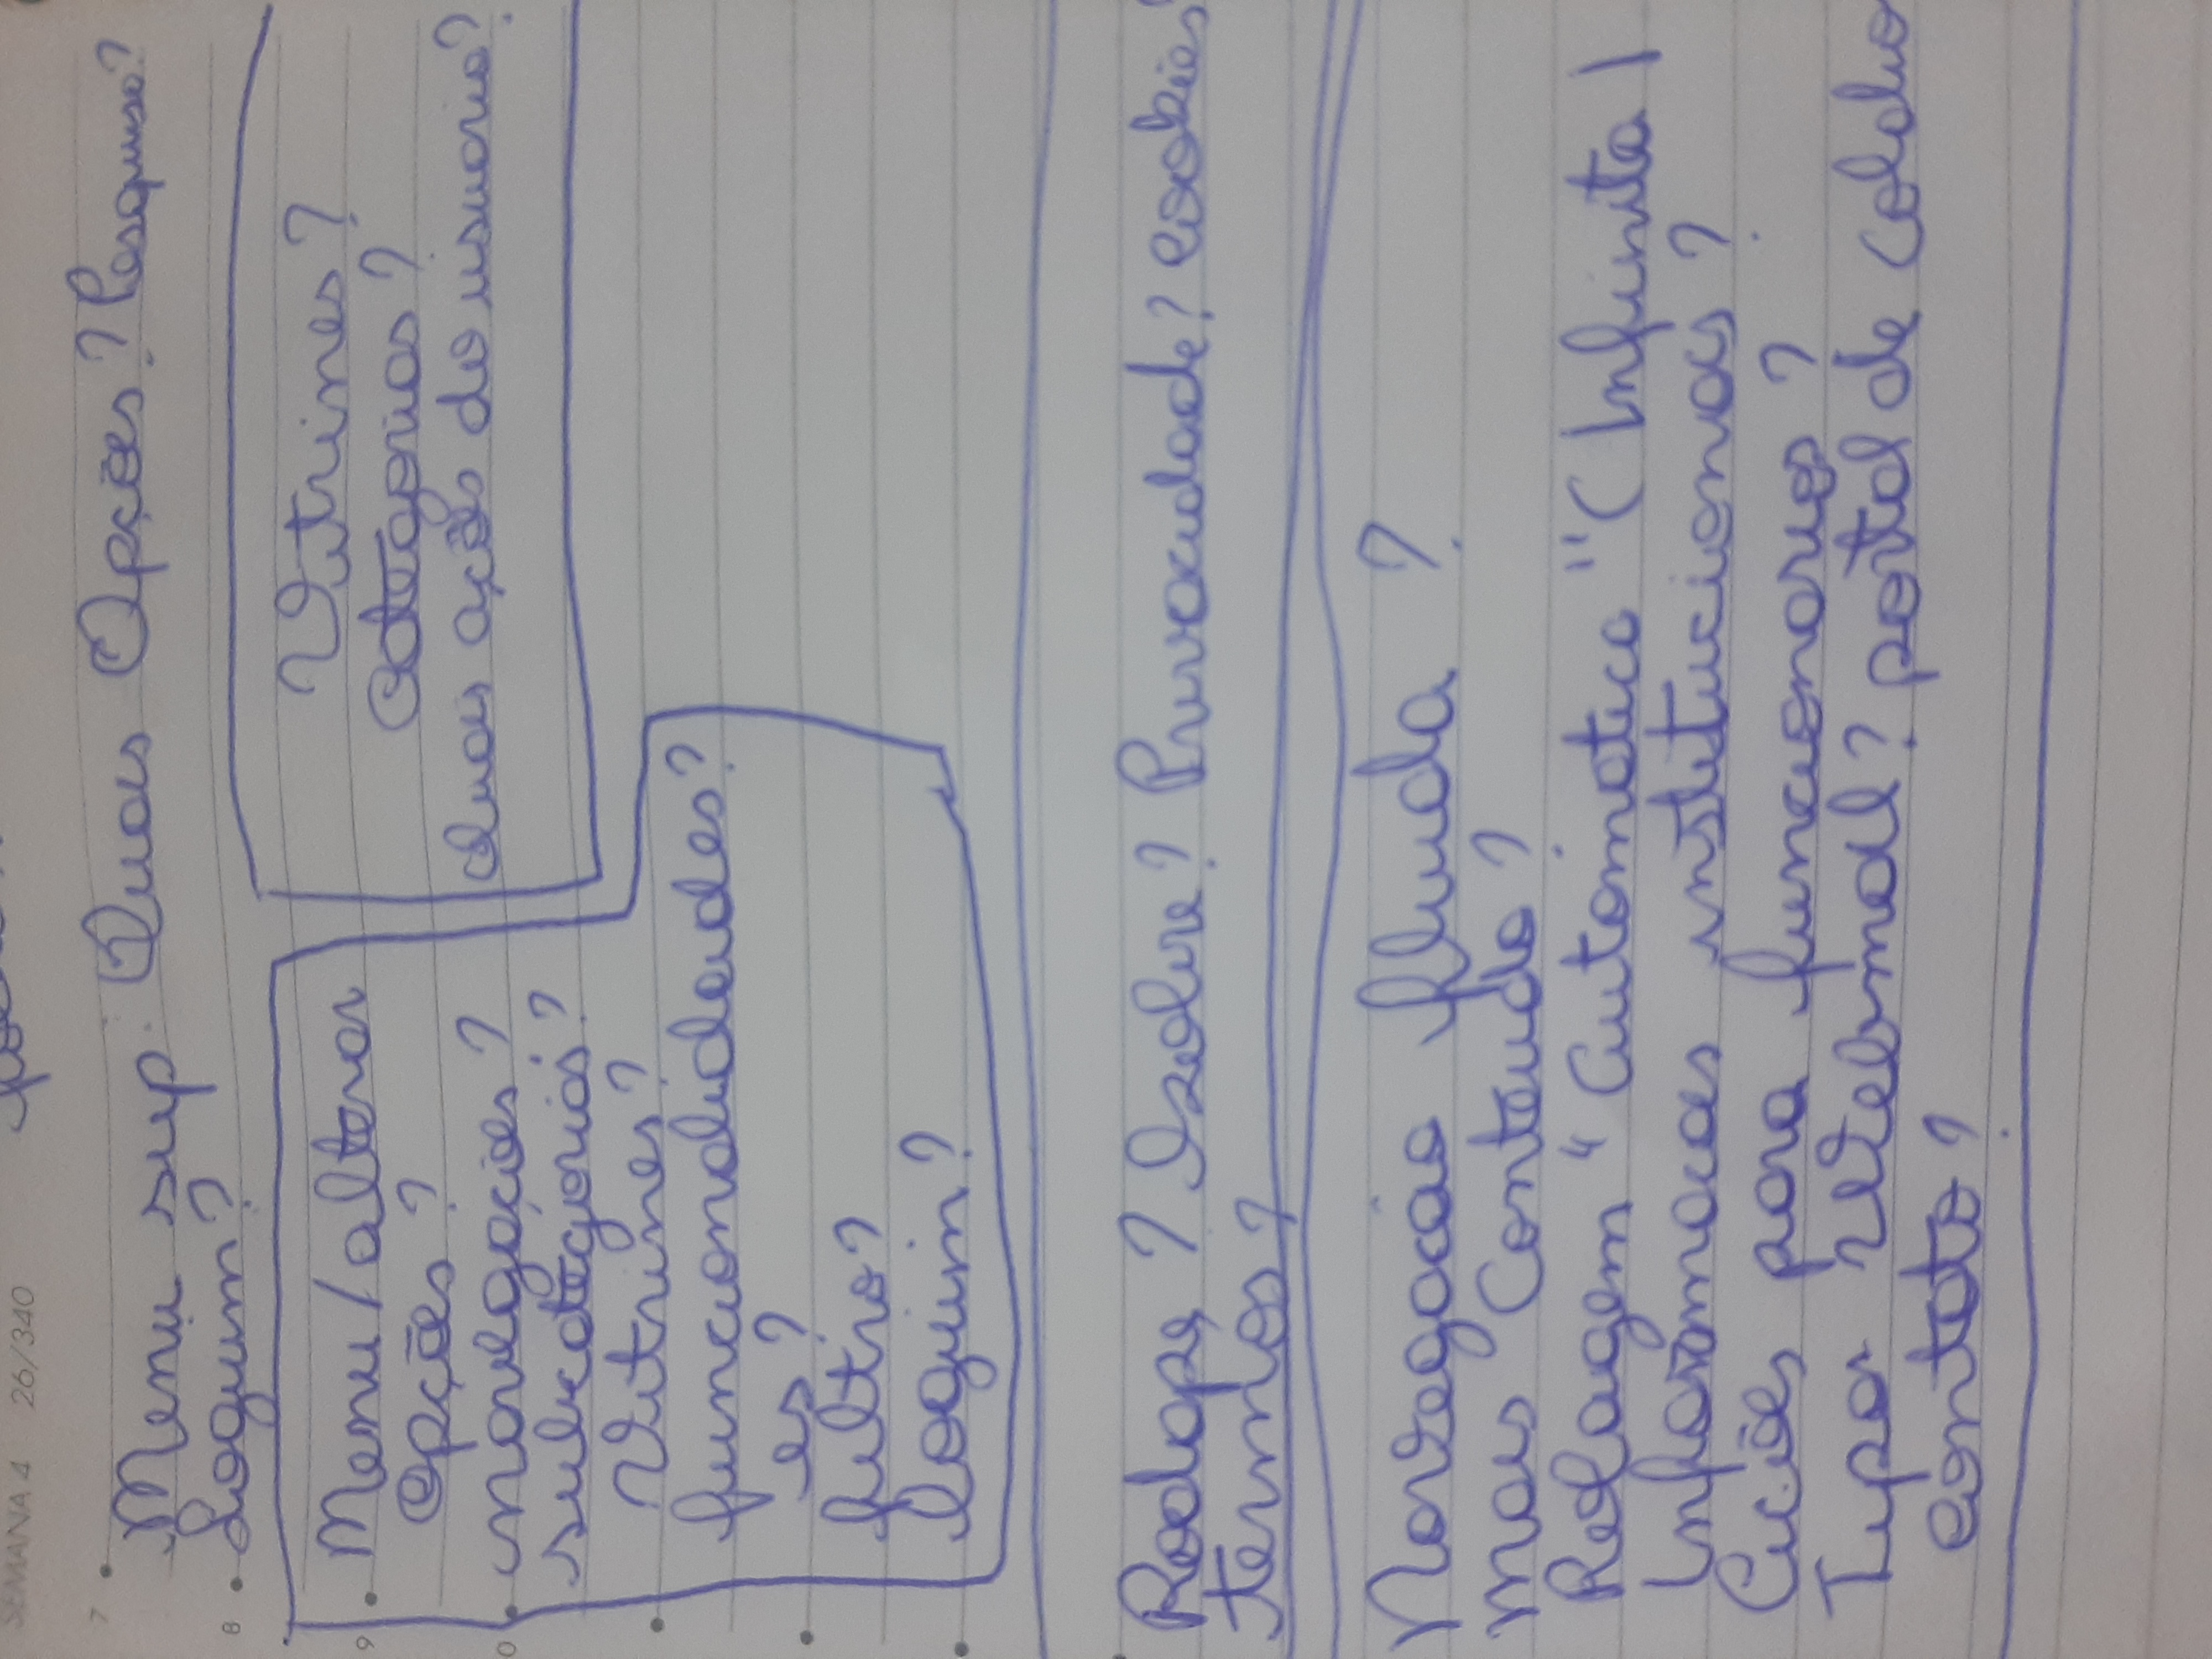 SEMANA 4 26/340
7
Menu sup. Quais Opções? Pesquisa?
8
Loguim?
Menu/alterar
Opções?
navegações?
subcategorias?
Vitrines?
funcionalidades?
es?
filtro?
loguim?
Vitrines?
Categorias?
Quais ações do usuario?
9
0
Rodapé? Isolive? Privacidade? cookies
termos?
Navegacão fluida?
mais Conteudo?
Rolagem "Automatica" (Infinita)
Informacoes institucionais?
Acões para funcionarios?
Tipo Webmail? portal de colabo
contato?